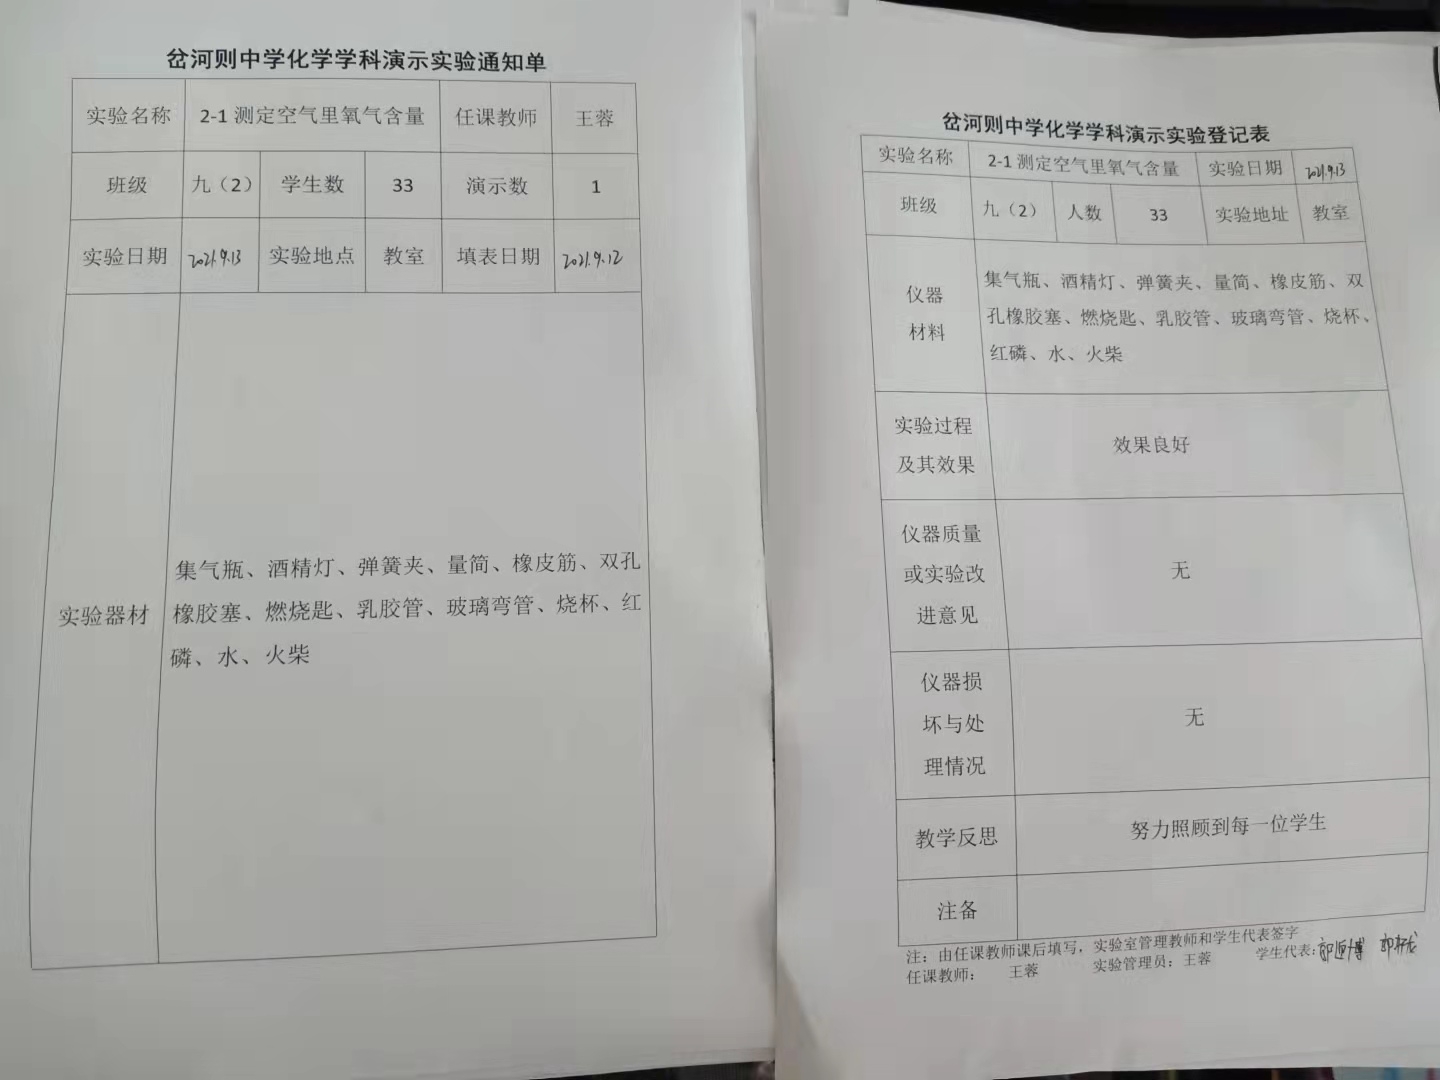 岔河则中学化学学科演示实验通知单
实验名称 2-1 测定空气里氧气含量 任课教师 王蓉
班级 九（2） 学生数 33 演示数 1
实验日期 2021.9.13 实验地点 教室 填表日期 2021.9.12
实验器材
集气瓶、酒精灯、弹簧夹、量简、橡皮筋、双孔
橡胶塞、燃烧匙、乳胶管、玻璃弯管、烧杯、红
磷、水、火柴
岔河则中学化学学科演示实验登记表
实验名称 2-1 测定空气里氧气含量 实验日期 2021.9.13
班级 九（2） 人数 33 实验地址 教室
仪器
材料
集气瓶、酒精灯、弹簧夹、量简、橡皮筋、双
孔橡胶塞、燃烧匙、乳胶管、玻璃弯管、烧杯、
红磷、水、火柴
实验过程
及其效果
效果良好
仪器质量
或实验改
进意见
无
仪器损
坏与处
理情况
无
教学反思 努力照顾到每一位学生
注备
注：由任课教师课后填写，实验室管理教师和学生代表签字
任课教师： 王蓉 实验管理员：王蓉 学生代表：